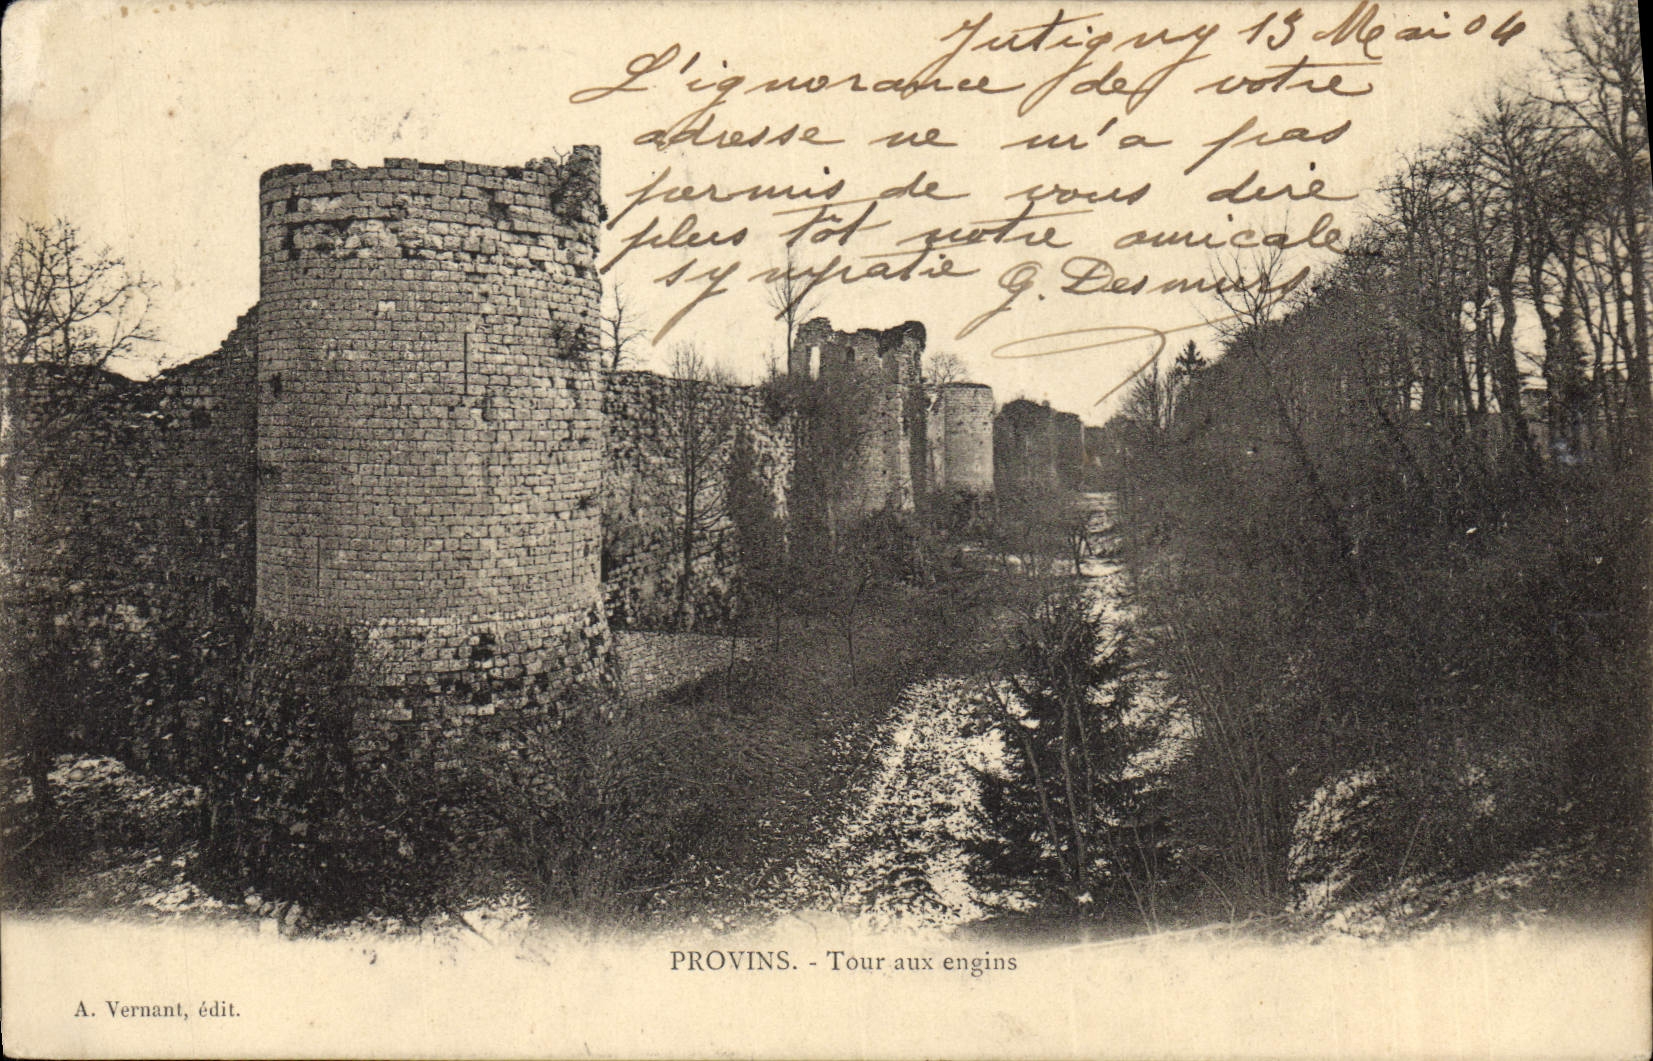 Jutigny 13 Mai 04
L'ignorance de votre
adresse ne m'a pas
permis de vous dire
plus tôt notre amicale
sympatie G. Desmurs
PROVINS. - Tour aux engins
A. Vernant, édit.